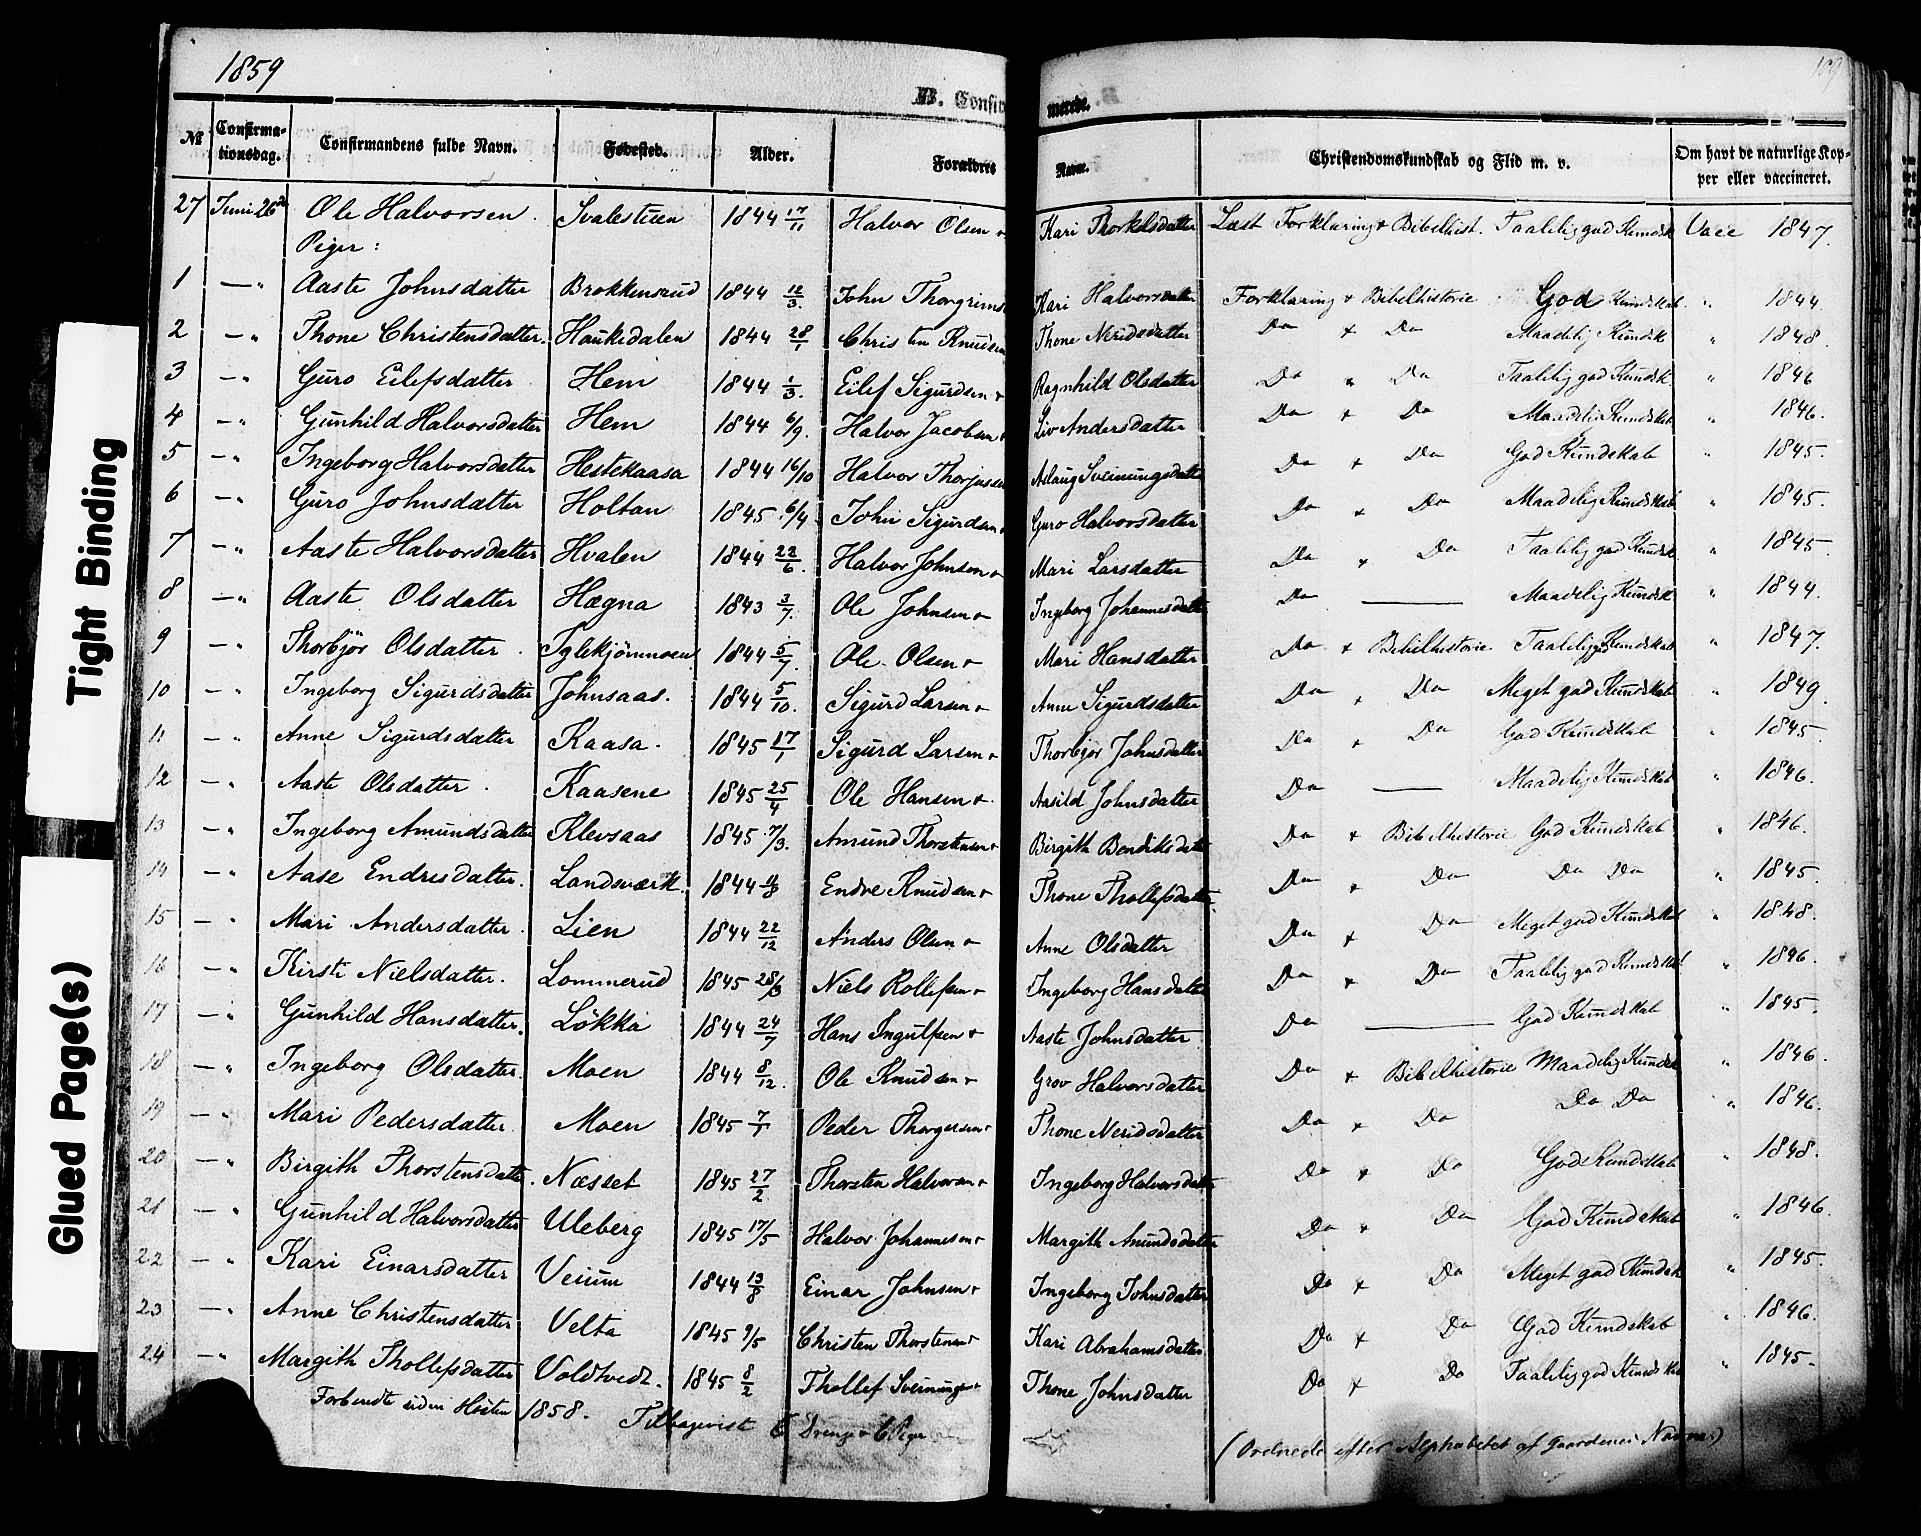 1859
109
B. Confirmerede.
№ Confirmationsdag. Confirmandens fulde Navn. Fødested. Alder. Forældres Navn. Christendomskundskab og Flid m. v. Om havt de naturlige Kopper eller vaccineret.
27 Juni 26 Ole Halvorsen Svalestuen 1844 17/11 Halvor Olsen + Kari Thorkelsdatter Læst Forklaring + Bibelhist. Taalelig god Kundsk Vacc 1847.
Piger:
1 — " Aaste Johnsdatter Brokkensrud 1844 12/3. John Thorgrims Kari Halvorsdatter Forklaring + Bibelhistorie God Kundskab " 1844.
2 — " Thone Christensdatter Haukedalen 1844 28/1 Christen Knudsen Thone Neridsdatter Do + Do Maadelig Kundsk " 1848.
3 — " Guro Eilefsdatter Hem 1844 1/3. Eilef Sigurdsen + Ragnhild Olsdatter Do " Do Taalelig god Kundsk. " 1846
4 — " Gunhild Halvorsdatter Hem 1844 6/9. Halvor Jacobsen + Liv Andersdatter Do + Do Maadelig Kundskab " 1846.
5 — " Ingeborg Halvorsdatter Hestekaasa 1844 16/10 Halvor Thorjussen Aslaug Sveinungsdatter Do + Do God Kundskab " 1845.
6 — " Guro Johnsdatter Holtan 1845 6/4. John Sigurdsen + Guro Halvorsdatter Do + Do Maadelig Kundskab " 1845.
7 — " Aaste Halvorsdatter Hvalen 1844 22/6. Halvor Johnsen + Mari Larsdatter Do + Do Taalelig god Kundsk. " 1845.
8 — " Aaste Olsdatter Hægna 1843 3/7. Ole Johnsen + Ingeborg Johannesdatter Do — Maadelig Kundsk " 1844.
9 — " Thorbjør Olsdatter Iglekjømmoen 1844 5/7. Ole Olsen + Mari Hansdatter Do + Bibelhistorie Taalelig god Kundskab " 1847.
10 — " Ingeborg Sigurdsdatter Johnsaas. 1844 5/10. Sigurd Larsen + Anne Sigurdsdatter Do + Do Meget god Kundskab " 1849.
11 — " Anne Sigurdsdatter Kaasa. 1845 17/1 Sigurd Larsen + Thorbjør Johnsdatter Do + Do God Kundskab " 1845
12 — " Aaste Olsdatter Kaasene 1845 25/4 Ole Hansen + Aasild Johnsdatter Do — Maadelig Kundskab " 1846.
13 — " Ingeborg Amundsdatter Klevsaas 1845 7/3. Amund Thorstensen + Birgith Bendiksdatter Do + Bibelhistorie God Kundskab " 1846.
14 — " Aase Endresdatter. Landsværk. 1844 11/8 Endre Knudsen + Thone Thollefsdatter. Do + Do Do Do " 1845.
15 — " Mari Andersdatter. Lien 1844 22/12 Anders Olsen + Anne Olsdatter Do + Do Meget god Kundskab " 1848.
16 — " Kirsti Nielsdatter. Lommerud 1845 28/3 Niels Rollefsen + Ingeborg Hansdatter Do + Do Taalelig god Kundskab " 1896.
17 — " Gunhild Hansdatter. Løkka 1844 24/7 Hans Ingulfsen + Aaste Johnsdatter Do — God Kundskab " 1845.
18 — " Ingeborg Olsdatter. Moen 1844 8/12. Ole Knudsen + Grov Halvorsdatter Do + Bibelhistorie Maadelig Kundsk " 1846.
19 — " Mari Pedersdatter. Moen 1845 7/1 Peder Thorgersen + Thone Neridsdatter Do + Do Do Do " 1846.
20 — " Birgith Thorstensdatter. Næsset 1845 27/2. Thorsten Halvorsen + Ingeborg Halvorsdatter Do + Do God Kundskab " 1848.
21 — " Gunhild Halvorsdatter Uleberg 1845 17/5 Halvor Johannesen + Margith Amundsdatter Do + Do God Kundskab " 1846.
22 — " Kari Einarsdatter Veium 1844 13/8 Einar Johnsen + Ingeborg Johnsdatter Do + Do Meget god Kundsk " 1845.
23 — " Anne Christensdatter Velta 1845 9/5 Christen Thorstensen + Kari Abrahamsdatter Do + Do God Kundskab " 1846.
24 — " Margith Thollefsdatter Voldtvedt. 1845 8/2 Thollef Sveinungsen + Thone Johnsdatter Do + Do Taalelig god Kundskab " 1845.
Forberedte siden Høsten 1858. Tilbagevist 6 Drenge + 6 Piger
(Ordnede efter Alphabetet af Gaardenes Navne)
Tight Binding
Glued Page(s)